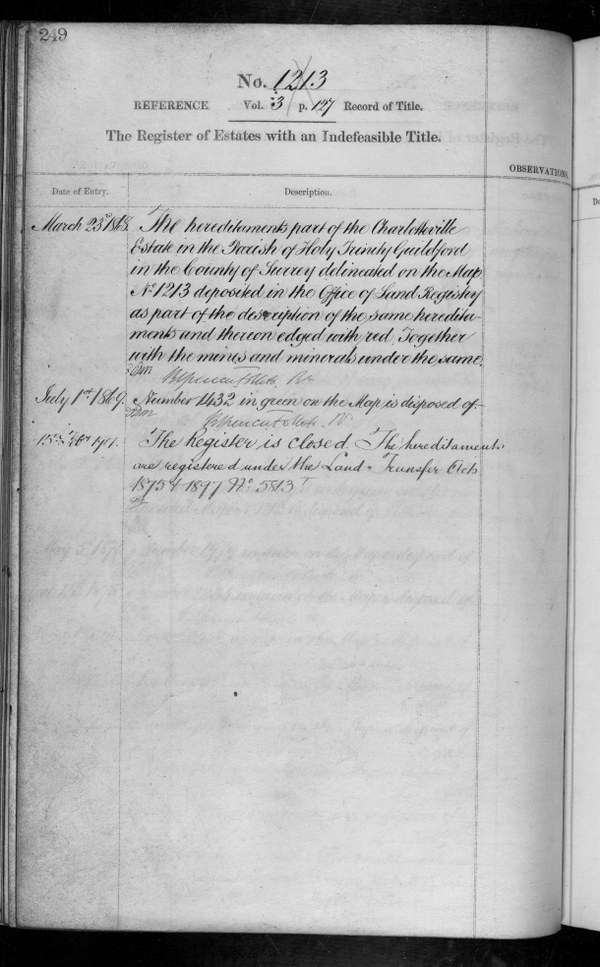 249
No. 1213
REFERENCE Vol. 3 p. 127 Record of Title.
The Register of Estates with an Indefeasible Title.
OBSERVATIONS.
Date of Entry. Description.
March 23rd 1868. The hereditaments part of the Charlotteville
Estate in the Parish of Holy Trinity Guildford
in the County of Surrey delineated on the Map
No. 1213 deposited in the Office of Land Registry
as part of the description of the same heredita-
ments and thereon edged with red Together
with the mines and minerals under the same.
Spencer Follett Rr
July 1st 1869. Number 1432 in green on the Map is disposed of.
Spencer Follett Rr
The Register is closed. The hereditaments
are registered under the Land Transfer Acts
1875 & 1897 No. 5813